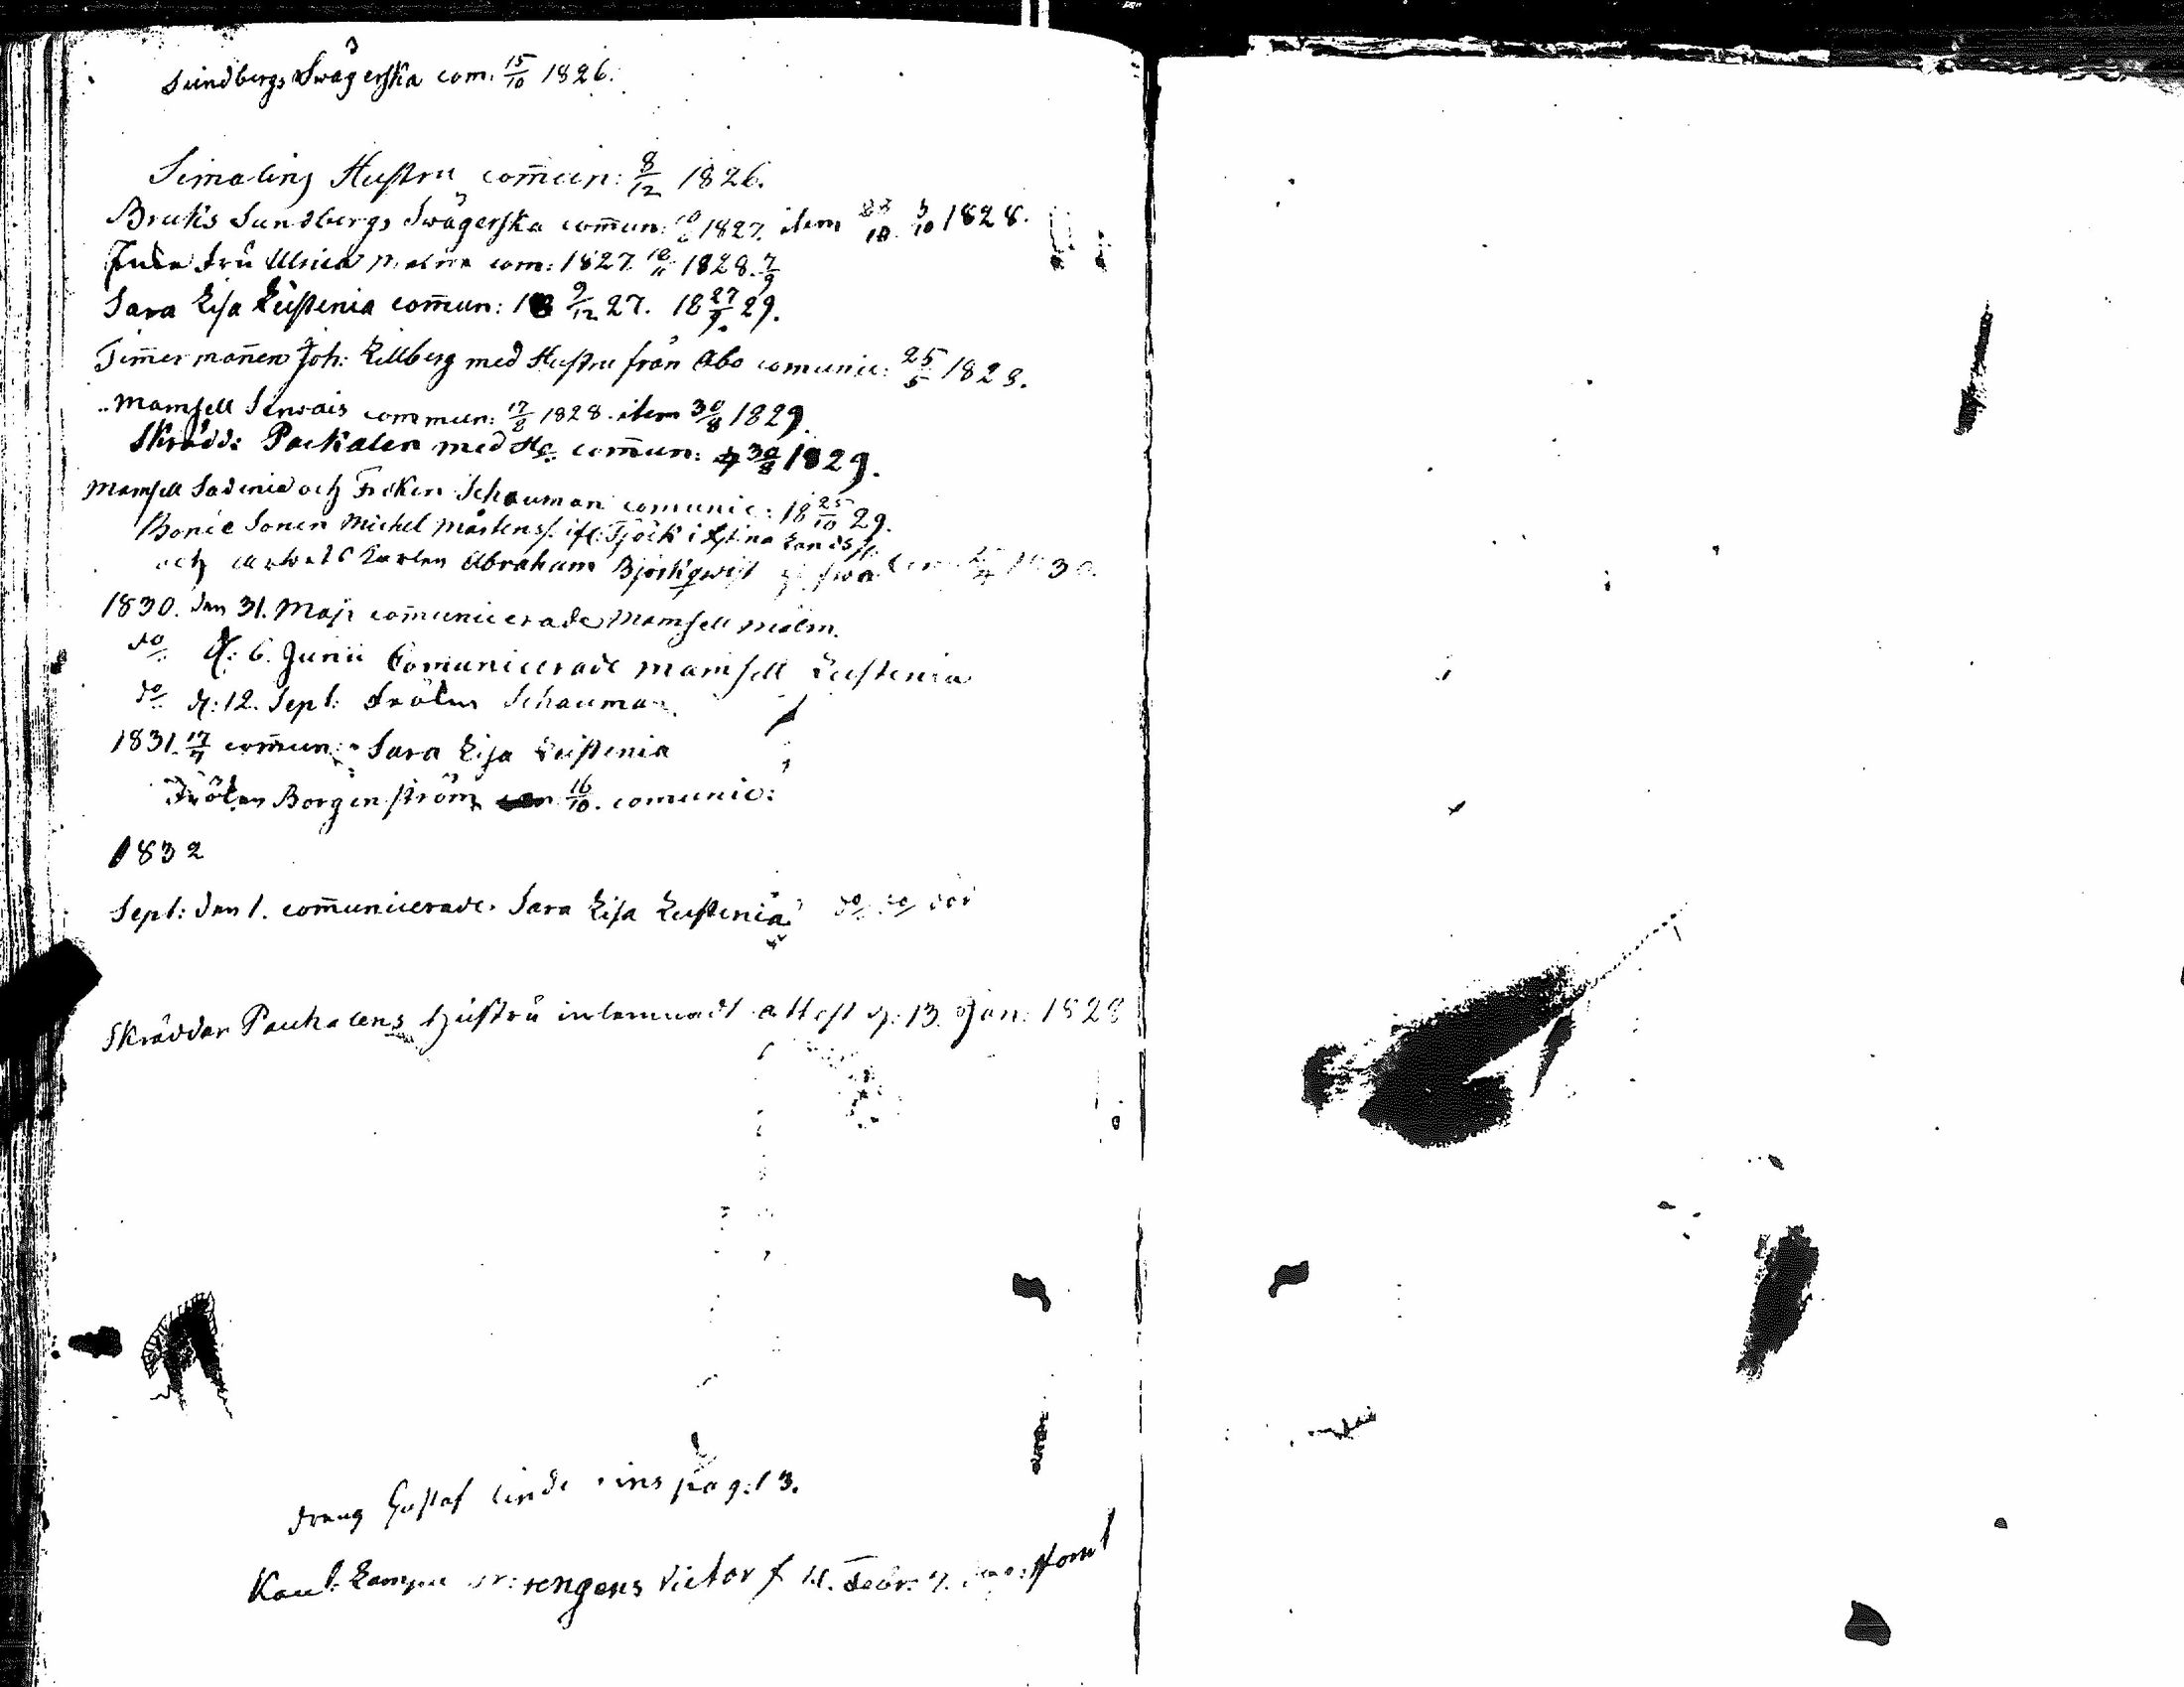 Sundbergs Swågerska com. 15/10 1826.
Simalins Hustru com̄un: 8/12 1826.
Bruks Sundbergs Swägerska com̄un: 1827. item 3/10 1828.
fru Ulrica com: 1827 1828. 7/9
Sara Lisa Leistenia com̄un: 18 9/12 27. 18 27/9 29.
Tim̄erman̄en Joh: Lillberg med Hustru från Åbo comunic: 25/5 1828.
Mamsell Servais commun: 17/8 1828. item 30/8 1829.
Skrädd: Packalen med H. com̄un: 30/8 1829.
Mamsell Sadenia och Fröken Schauman comunic: 18 25/10 29.
Bonde Sonen Michel Mårtenss. Tjöck i Xstina Lands
och Karlen Abraham Björkqwist 1830.
1830. den 31. Maji com̄unicerade Mamsell Malm.
do d: 6. Junii Comunicerade Mamsell Leistenia
do d: 12. Sept: Frölen Schauman.
1831. 17/7 com̄un: Sara Lisa Leistenia
Frölen Borgenström 16/10. comunic:
1832
Sept: den 1. com̄unicerade Sara Lisa Leistenia do do
Skräddar Packalens Hustru inlemnadt attest d: 13. Jan: 1828
dräng Gustaf Lind ins pag: 13.
Victor